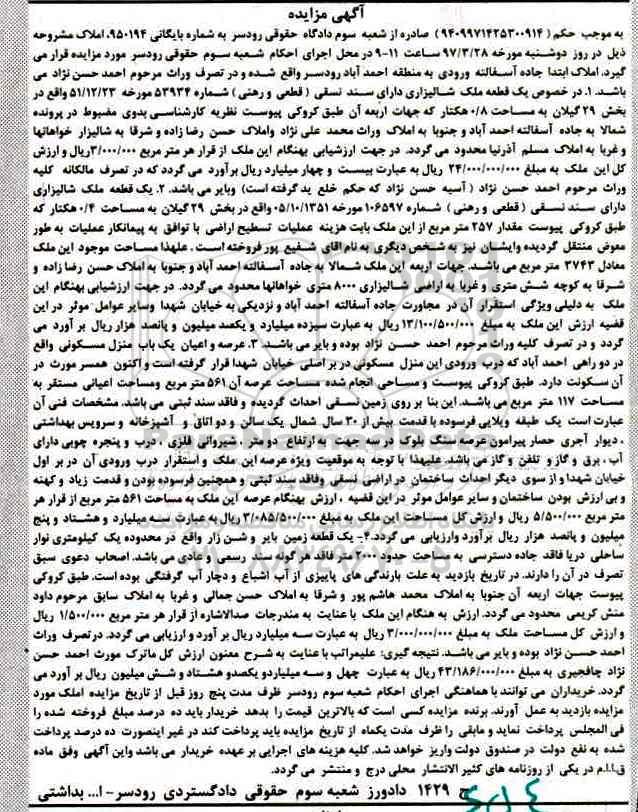 آگهی مزایده
به موجب حکم (۹۴۰۹۹۷۱۴۲۵۳۰۰۹۱۴) صادره از شعبه سوم دادگاه حقوقی رودسر به شماره بایگانی ۹۵۰۱۹۴، املاک مشروحه
ذیل در روز دوشنبه مورخه ۹۷/۳/۲۸ ساعت ۱۱-۹ در محل اجرای احکام شعبه سوم حقوقی رودسر مورد مزایده قرار می
گیرد، املاک ابتدا جاده آسفالته ورودی به منطقه احمد آباد رودسر واقع شده و در تصرف وراث مرحوم احمد حسن نژاد می
باشند. ۱. در خصوص یک قطعه ملک شالیزاری دارای سند نسقی (قطعی و رهنی) شماره ۵۳۹۳۴ مورخه ۵۱/۱۲/۲۳ واقع در
بخش ۲۹ گیلان به مساحت ۰/۸ هکتار که جهات اربعه آن طبق کروکی پیوست نظریه کارشناسی بدوی مضبوط در پرونده
شمالا به جاده آسفالته احمد آباد و جنوبا به املاک وراث محمد علی نژاد واملاک حسن رضا زاده و شرقا به شالیزار خواهانها
و غربا به املاک مسلم آذرنیا محدود می گردد. در جهت ارزشیابی بهنگام این ملک از قرار هر متر مربع ۳/۰۰۰/۰۰۰ریال و ارزش
کل این ملک به مبلغ ۲۴/۰۰۰/۰۰۰/۰۰۰ ریال به عبارت بیست و چهار میلیارد ریال برآورد می گردد که در تصرف مالکانه کلیه
وراث مرحوم احمد حسن نژاد (آسیه حسن نژاد که حکم خلع ید گرفته است) وبایر می باشد. ۲. یک قطعه ملک شالیزاری
دارای سند نسقی (قطعی و رهنی) شماره ۱۰۶۵۹۷ مورخه ۰۵/۱۰/۱۳۵۱ واقع در بخش ۲۹ گیلان به مساحت ۰/۴ هکتار که
طبق کروکی پیوست مقدار ۲۵۷ متر مربع از این ملک بابت هزینه عملیات تسطیح اراضی با توافق به پیمانکار عملیات به طور
معوض منتقل گردیده وایشان نیز به شخص دیگری به نام اقای شفیع پور فروخته است. علهذا مساحت موجود این ملک
معادل ۳۷۴۳ متر مربع می باشد. جهات اربعه این ملک شمالا به جاده آسفالته احمد آباد و جنوبا به املاک حسن رضا زاده و
شرقا به کوچه شش متری و غربا به اراضی شالیزاری ۸۰۰۰ متری خواهانها محدود می گردد. در جهت ارزشیابی بهنگام این
ملک به دلیلی ویژگی استقرار آن در مجاورت جاده آسفالته احمد آباد و نزدیکی به خیابان شهدا وسایر عوامل موثر در این
قضیه ارزش این ملک به مبلغ ۱۳/۱۰۰/۵۰۰/۰۰۰ ریال به عبارت سیزده میلیارد و یکصد میلیون و پانصد هزار ریال بر آورد می
گردد و در تصرف کلیه وراث مرحوم احمد حسن نژاد بوده و بایر می باشد. ۳. عرصه و اعیان یک باب منزل مسکونی واقع
در دو راهی احمد آباد که درب ورودی این منزل مسکونی در بر اصلی خیابان شهدا قرار گرفته است و اکنون همسر مورث در
آن سکونت دارد. طبق کروکی پیوست و مساحی انجام شده مساحت عرصه آن ۵۶۱ متر مربع ومساحت اعیانی مستقر به
مساحت ۱۱۷ متر مربع می باشند. این بنا بر روی زمین نسقی احداث گردیده و فاقد سند ثبتی می باشد. مشخصات فنی آن
عبارت است یک طبقه ویلایی فرسوده با قدمت بیش از ۳۰ سال شمال یک سالن و دو اتاق و آشپزخانه و سرویس بهداشتی
، دیوار آجری حصار پیرامون عرصه سنگ بلوک در سه جهت به ارتفاع دو متر ، شیروانی فلزی ، درب و پنجره چوبی دارای
آب ، برق و گاز و تلفن و گاز می باشد. علیهذا با توجه به موقعیت ویژه عرصه این ملک و استقرار درب ورودی آن در بر اول
خیابان شهدا و از سوی دیگر احداث ساختمان در اراضی نسقی وفاقد سند ثبتی و همچنین فرسوده بودن و قدمت زیاد و کهنه
و بی ارزش بودن ساختمان و سایر عوامل موثر در این قضیه ، ارزش بهنگام عرصه این ملک به مساحت ۵۶۱ متر مربع از قرار هر
متر مربع ۵/۵۰۰/۰۰۰ ریال و ارزش کل مساحت این ملک به مبلغ ۳/۰۸۵/۵۰۰/۰۰۰ریال به عبارت سه میلیارد و هشتاد و پنج
میلیون و پانصد هزار ریال برآورد وارزیابی می گردد.۴- یک قطعه زمین بایر و شن زار واقع در محدوده یک کیلومتری نوار
ساحلی دریا فاقد جاده دسترسی به مساحت حدود ۲۰۰۰ متر فاقد هر گونه سند رسمی و عادی می باشد. اصحاب دعوی سبق
تصرف در آن را دارند. در تاریخ بازدید به علت بارندگی های پاییزی از آب اشباع و دچار آب گرفتگی بوده است. طبق کروکی
پیوست جهات اربعه آن جنوبا به املاک محمد هاشم پور و شرقا به املاک حسن جمالی و غربا به املاک سابق مرحوم داود
منش کریمی محدود می گردد. ارزش به هنگام این ملک با عنایت به مندرجات صدالاشاره از قرار هر متر مربع ۱/۵۰۰/۰۰۰ ریال
و ارزش کل مساحت ملک به مبلغ ۳/۰۰۰/۰۰۰/۰۰۰ ریال به عبارت سه میلیارد ریال بر آورد و ارزیابی می گردد. درتصرف وراث
احمد حسن نژاد بوده و بایر می باشد. نتیجه گیری: علیمراتب با عنایت به شرح معنون ارزش کل ماترک مورث احمد حسن
نژاد چافجیری به مبلغ ۴۳/۱۸۶/۰۰۰/۰۰۰ ریال به عبارت چهل و سه میلیاردو یکصدو هشتاد و شش میلیون ریال بر آورد می
گردد. خریداران می توانند با هماهنگی اجرای احکام شعبه سوم رودسر ظرف مدت پنج روز قبل از تاریخ مزایده املک مورد
مزایده بازدید به عمل آورند. برنده مزایده کسی است که بالاترین قیمت را بدهد خریدار باید ده درصد مبلغ فروخته شده را
فی المجلس پرداخت نماید و مابقی را ظرف مدت یکماه از تاریخ مزایده باید پرداخت کند در غیر اینصورت ده درصد پرداخت
شده به نفع دولت در صندوق دولت واریز خواهد شد. کلیه هزینه های اجرایی بر عهده خریدار می باشد واین آگهی وفق ماده
ق.ا.ا.م در یکی از روزنامه های کثیر الانتشار محلی درج و منتشر می گردد.
ج ۱۴۲۹ دادورز شعبه سوم حقوقی دادگستردی رودسر-ا... بداشتی